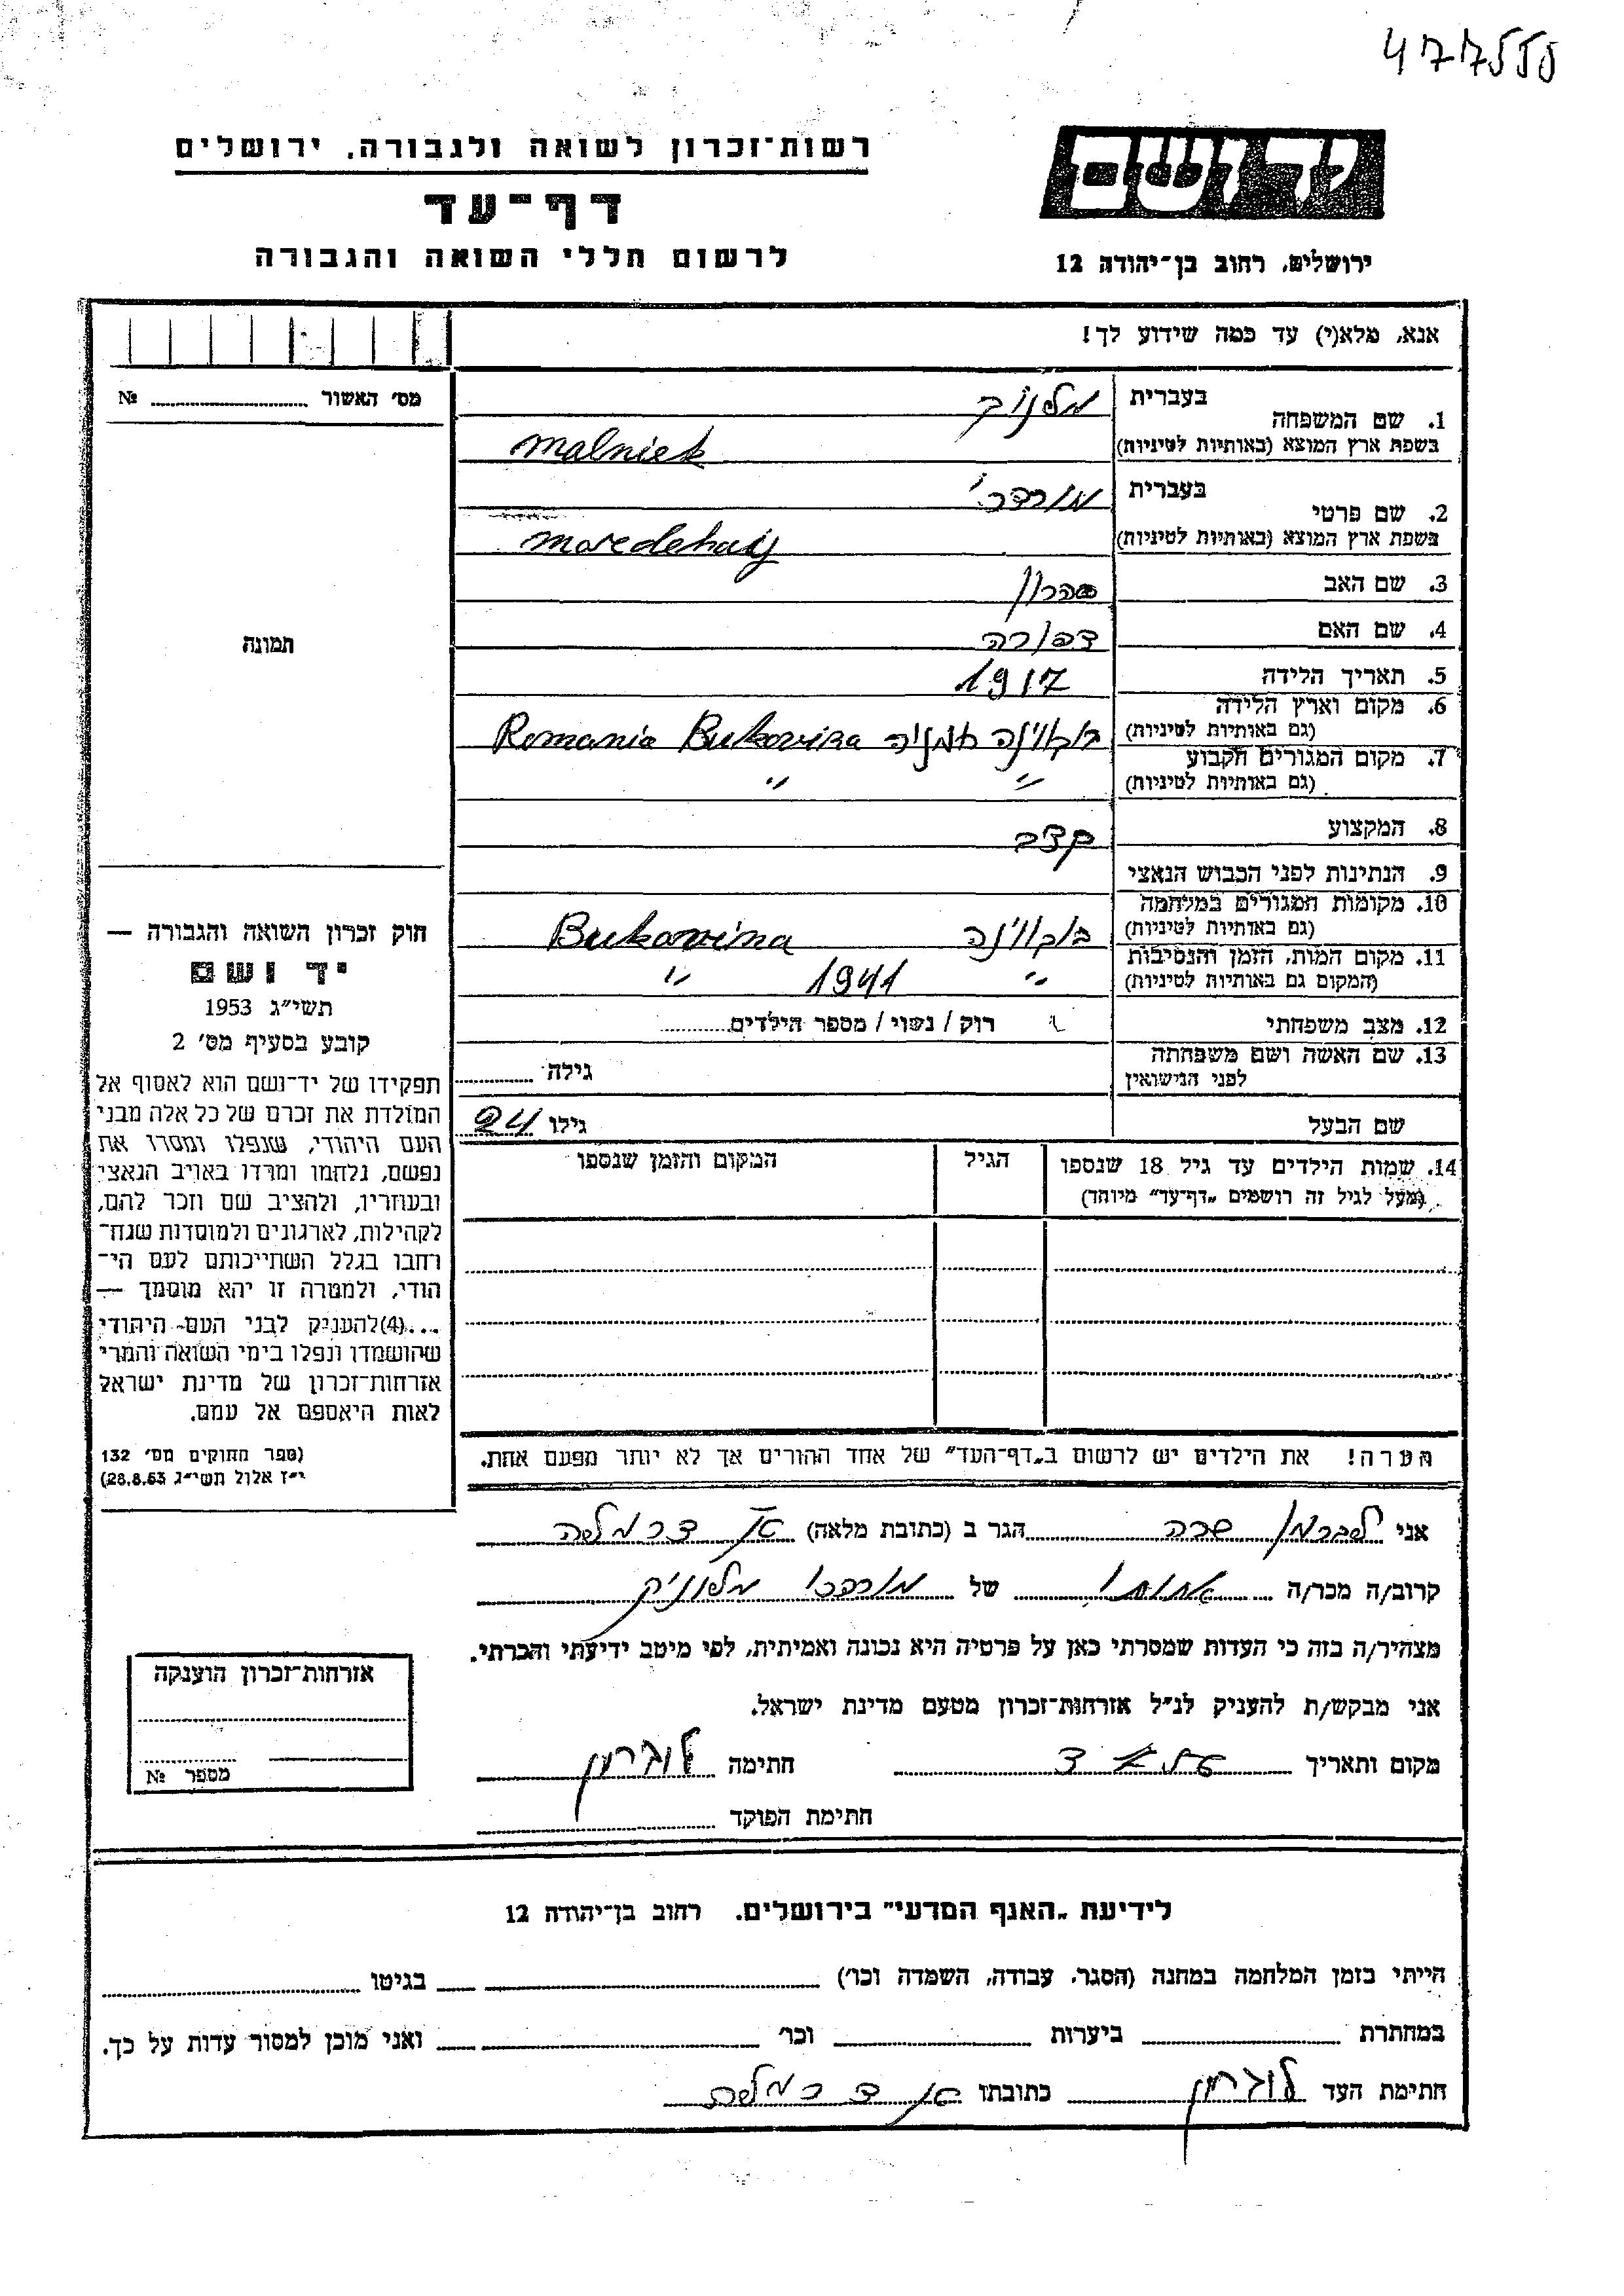 477555
רשות־זכרון לשואה ולגבורה. ירושלים
דף־עד
לרשום חללי השואה והגבורה
יד ושם
ירושלים, רחוב בן־יהודה 12
אנא, מלא(י) עד כמה שידוע לך!
מס' האשור № 
1. שם המשפחה בעברית
בשפת ארץ המוצא (באותיות לטיניות) malniek
2. שם פרטי בעברית מורדכי
בשפת ארץ המוצא (באותיות לטיניות)
3. שם האב אהרון
4. שם האם דבורה
5. תאריך הלידה 1917
6. מקום וארץ הלידה
(גם באותיות לטיניות) Romania Bukovina
7. מקום המגורים הקבוע
(גם באותיות לטיניות) " "
8. המקצוע קצב
9. הנתינות לפני הכבוש הנאצי
10. מקומות המגורים במלחמה
(גם באותיות לטיניות) בוקווינה Bukovina
11. מקום המות, הזמן והנסיבות
(המקום גם באותיות לטיניות) " 1941 "
12. מצב משפחתי ר רוק / נשוי / מספר הילדים
13. שם האשה ושם משפחתה
לפני הנישואין גילה
שם הבעל גילו 24
14. שמות הילדים עד גיל 18 שנספו הגיל המקום והזמן שנספו
(מעל לגיל זה רושמים „דף־עד" מיוחד)
תמונה
חוק זכרון השואה והגבורה —
יד ושם
תשי"ג 1953
קובע בסעיף מס' 2
תפקידו של יד־ושם הוא לאסוף אל
המולדת את זכרם של כל אלה מבני
העם היהודי, שנפלו ומסרו את
נפשם, נלחמו ומרדו באויב הנאצי
ובעוזריו, ולהציב שם וזכר להם,
לקהילות, לארגונים ולמוסדות שנח־
רבו בגלל השתייכותם לעם הי־
הודי, ולמטרה זו יהא מוסמך —
...(4)להעניק לבני העם היהודי
שהושמדו ונפלו בימי השואה והמרי
אזרחות־זכרון של מדינת ישראל
לאות היאספם אל עמם.
(ספר החוקים מס' 132
י"ז אלול תשי"ג 28.8.53)
הערה! את הילדים יש לרשום ב„דף־העד" של אחד ההורים אך לא יותר מפעם אחת.
אני ליברמן שרה הגר ב (כתובת מלאה)
קרוב/ה מכר/ה אחותו של מורדכי מלניק
מצהיר/ה בזה כי העדות שמסרתי כאן על פרטיה היא נכונה ואמיתית, לפי מיטב ידיעתי והכרתי.
אני מבקש/ת להעניק לנ"ל אזרחות־זכרון מטעם מדינת ישראל.
מקום ותאריך חתימה
חתימת הפוקד
אזרחות־זכרון הוענקה
מספר №
לידיעת „האנף המדעי" בירושלים. רחוב בן־יהודה 12
הייתי בזמן המלחמה במחנה (הסגר, עבודה, השמדה וכו') בגיטו
במחתרת ביערות וכו' ואני מוכן למסור עדות על כך.
חתימת העד כתובתו